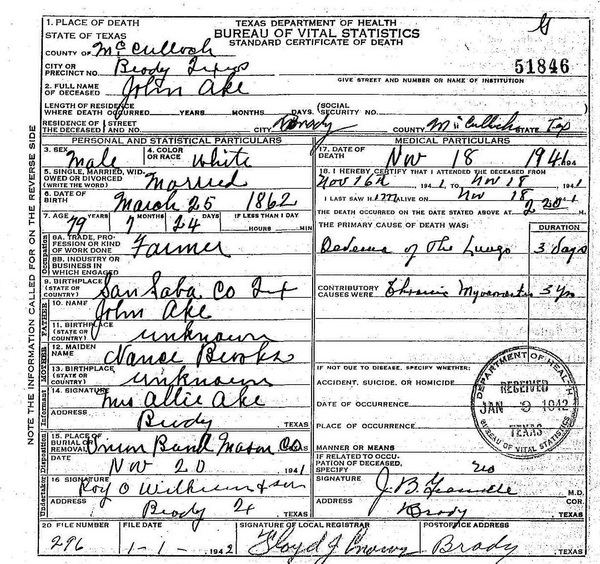 1. PLACE OF DEATH TEXAS DEPARTMENT OF HEALTH G
STATE OF TEXAS BUREAU OF VITAL STATISTICS
COUNTY OF McCulloch STANDARD CERTIFICATE OF DEATH
CITY OR PRECINCT NO. Brady Texas 51846
GIVE STREET AND NUMBER OR NAME OF INSTITUTION
2. FULL NAME OF DECEASED John Ake
LENGTH OF RESIDENCE WHERE DEATH OCCURRED YEARS MONTHS DAYS (SOCIAL SECURITY NO.
RESIDENCE OF THE DECEASED STREET AND NO. CITY Brady COUNTY McCulloch STATE Tex
PERSONAL AND STATISTICAL PARTICULARS MEDICAL PARTICULARS
3. SEX Male 4. COLOR OR RACE White 17. DATE OF DEATH Nov 18 1941 194
5. SINGLE, MARRIED, WIDOWED OR DIVORCED (WRITE THE WORD) Married
18. I HEREBY CERTIFY THAT I ATTENDED THE DECEASED FROM
Nov 16th 1941 TO Nov 18 1941
6. DATE OF BIRTH March 25 1862
I LAST SAW HIM ALIVE ON Nov 18 1941
7. AGE 79 YEARS 7 MONTHS 24 DAYS IF LESS THAN 1 DAY HOURS MIN
THE DEATH OCCURRED ON THE DATE STATED ABOVE AT
8A. TRADE, PROFESSION OR KIND OF WORK DONE Farmer
THE PRIMARY CAUSE OF DEATH WAS: DURATION
Oedema of The Lungs 3 days
8B. INDUSTRY OR BUSINESS IN WHICH ENGAGED
9. BIRTHPLACE (STATE OR COUNTRY) San Saba Co Tex
CONTRIBUTORY CAUSES WERE Chronic 3 yrs
FATHER 10. NAME John Ake
11. BIRTHPLACE (STATE OR COUNTRY) unknown
MOTHER 12. MAIDEN NAME Nance Brooks
13. BIRTHPLACE (STATE OR COUNTRY) unknown
IF NOT DUE TO DISEASE, SPECIFY WHETHER:
ACCIDENT, SUICIDE, OR HOMICIDE
Informant 14. SIGNATURE Mrs Allie Ake
DATE OF OCCURRENCE
ADDRESS Brady
PLACE OF OCCURRENCE
15. PLACE OF BURIAL OR REMOVAL Union Band Mason Co TEXAS
MANNER OR MEANS
DATE Nov 20 1941
IF RELATED TO OCCUPATION OF DECEASED, SPECIFY no
Undertaker 16. SIGNATURE Roy O Wilkerson & son
SIGNATURE J. B. M.D.
ADDRESS Brady TEXAS
ADDRESS Brady TEXAS
20 FILE NUMBER FILE DATE SIGNATURE OF LOCAL REGISTRAR POSTOFFICE ADDRESS
296 1-1- 1942 Floyd J Brady, TEXAS
DEPARTMENT OF HEALTH
RECEIVED
JAN 9 1942
TEXAS
BUREAU OF VITAL STATISTICS
NOTE THE INFORMATION CALLED FOR ON THE REVERSE SIDE